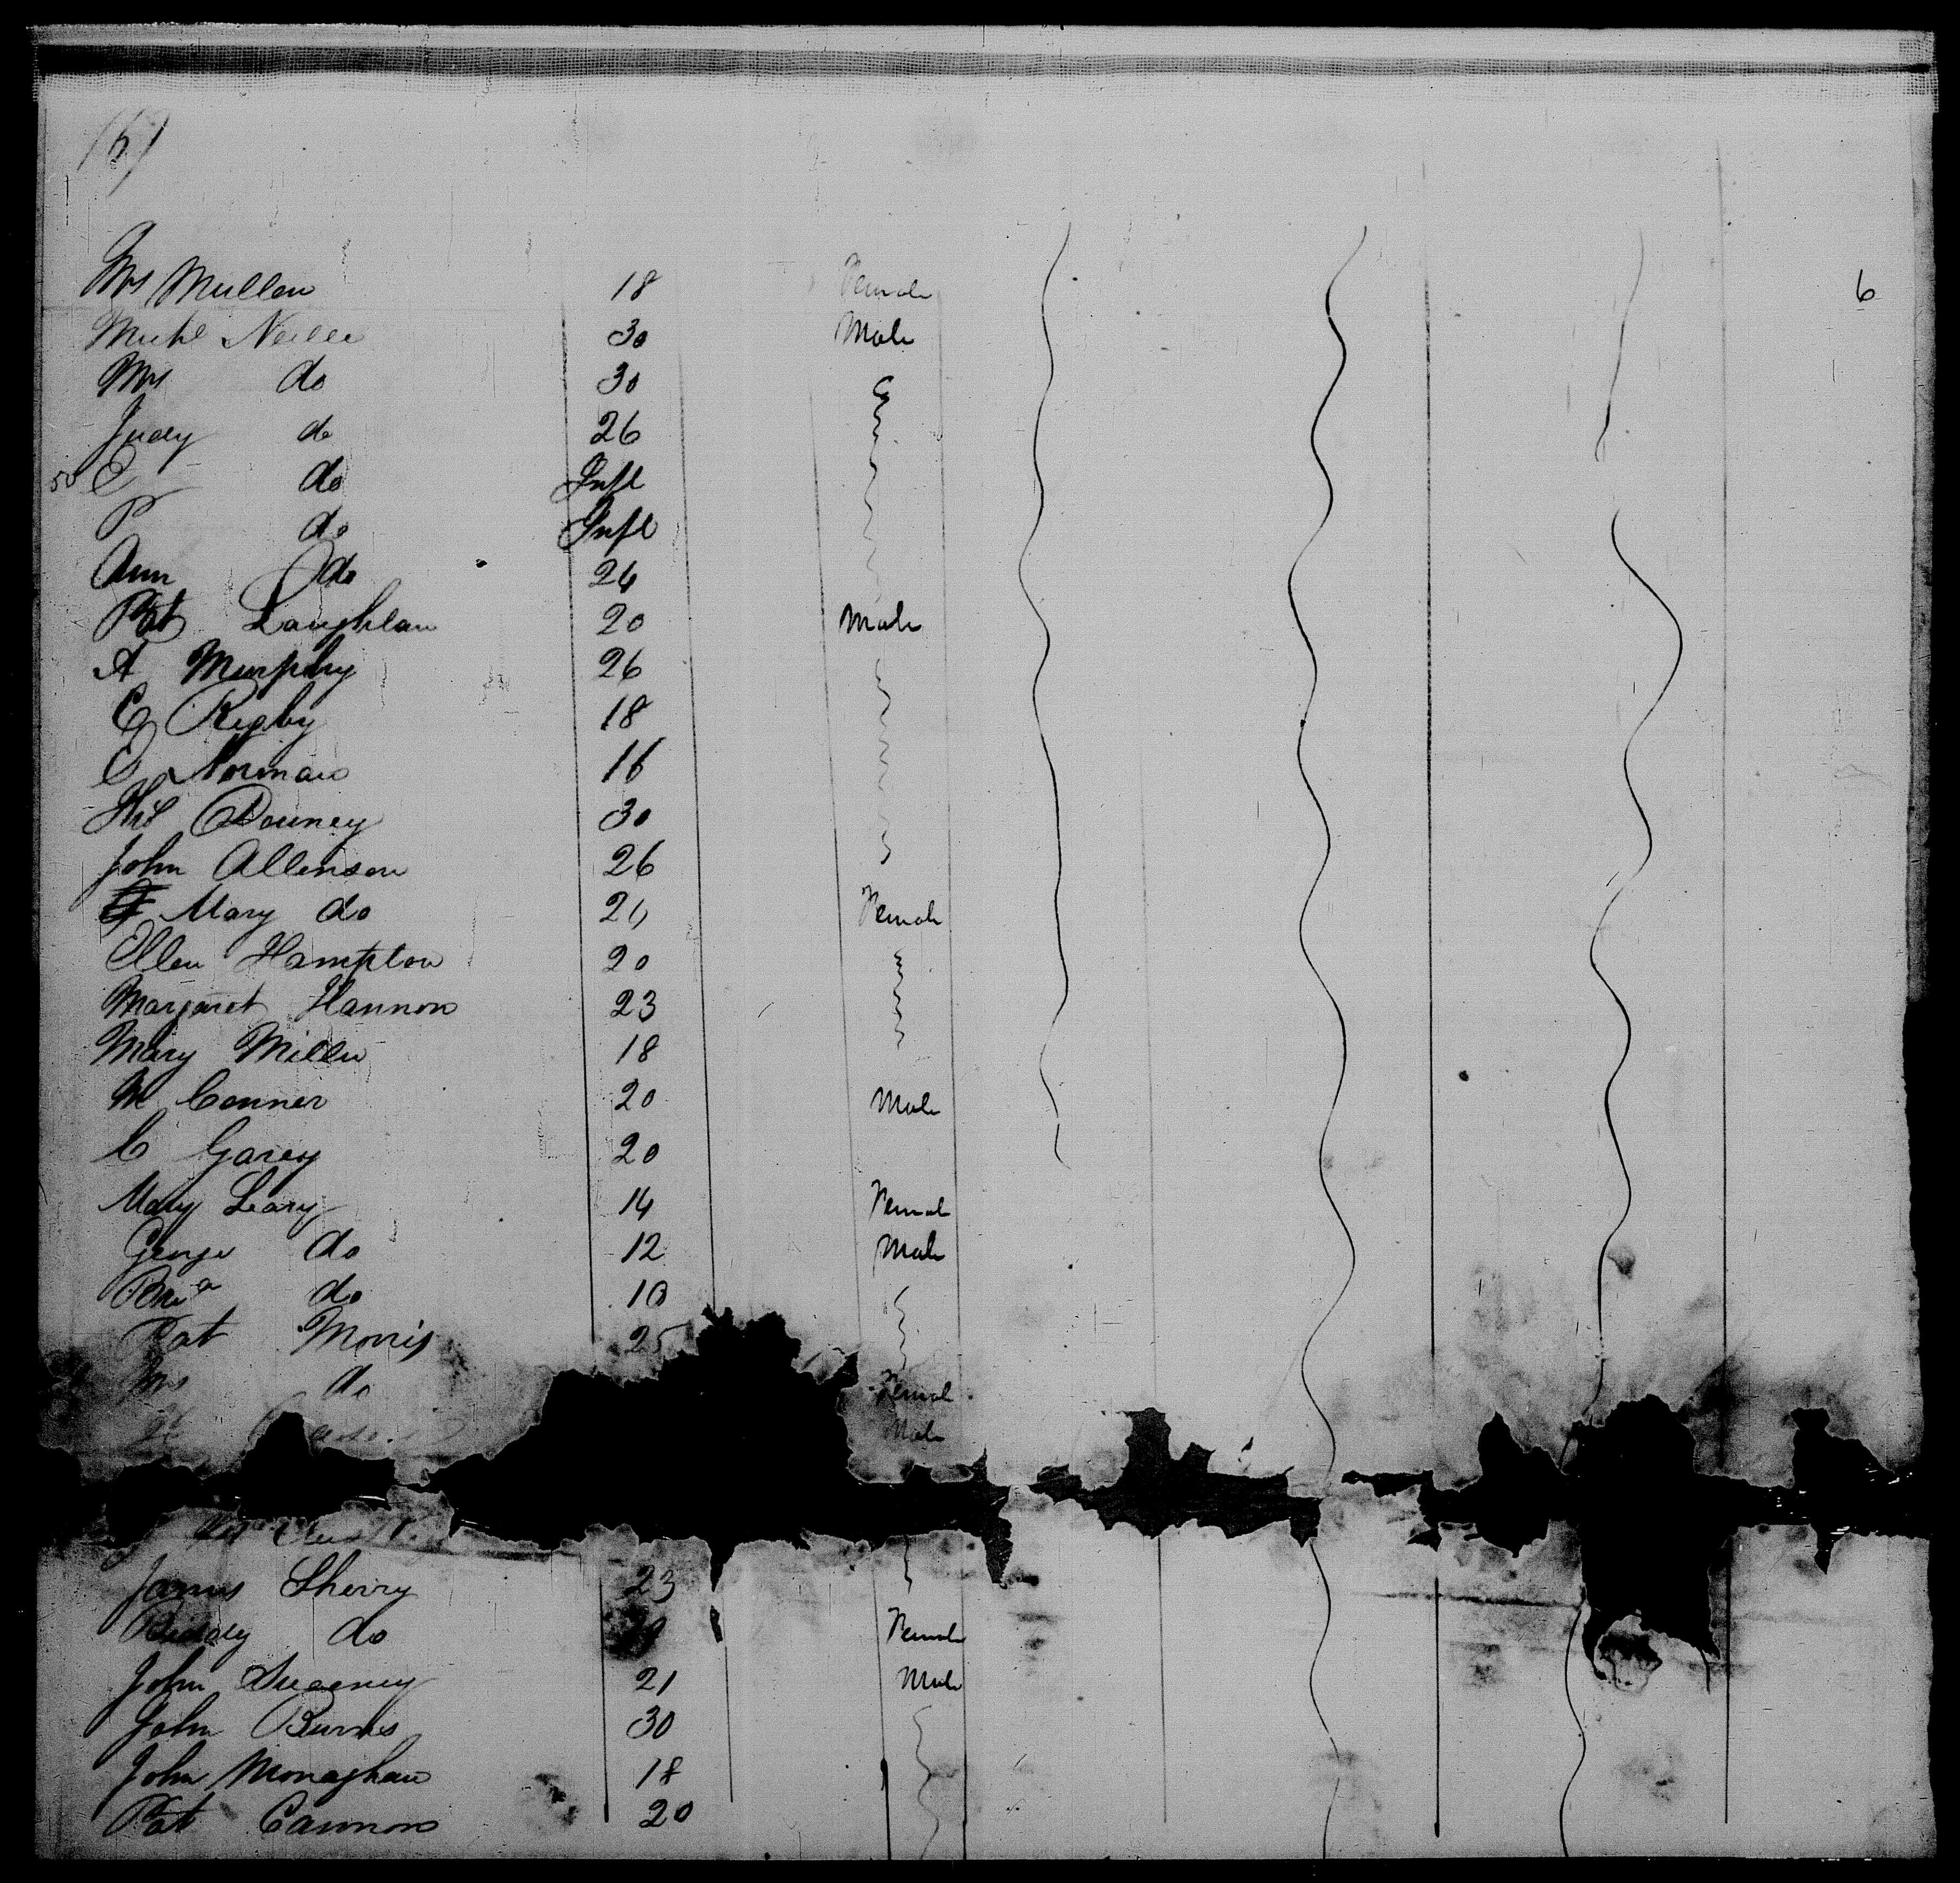 (6)
6
Mrs Mullen 18 Female
Michl 30 Male
Mrs do 30
Judy do 26
50 E do Inft
P do Inft
Ann do 24
Pat Laughlan 20 Male
A Murphy 26
C Rigby 18
Norman 16
Downey 30
John Allenson 26
Mary do 21 Female
Ellen Hampton 20
Margaret Hannon 23
Mary Miller 18
M Conner 20 Male
C Garey 20
Mary Leary 14 Female
George do 12 Male
do 10
Pat Morris 25
Mrs do Female
Male
James Sherry 23
Biddy do Female
John Sweeney 21 Male
John Burns 30
John Monaghan 18
Pat Cannon 20